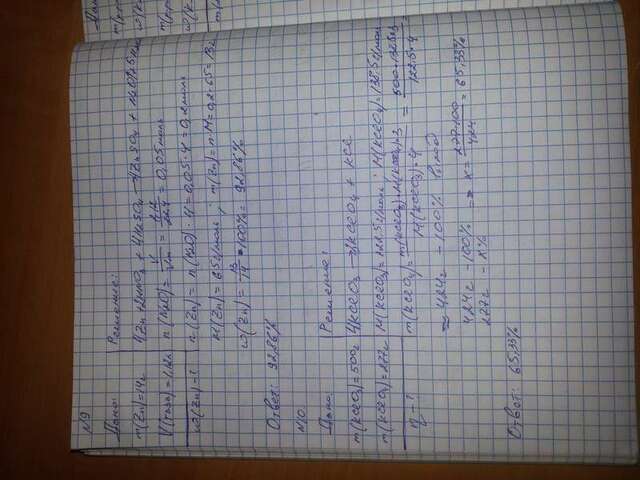 №9
Дано:
m(Zn)=14г
V(N2O)=1,12л
ω(Zn)=?
Решение:
4Zn+2HNO3+4H2SO4→4ZnSO4+N2O↑+5H2O
n(N2O)=V/Vm=1,12/22,4=0,05моль
n(Zn)=n(N2O)·4=0,05·4=0,2моль
M(Zn)=65г/моль; m(Zn)=n·M=0,2·65=13г
ω(Zn)=13/14·100%=92,86%
Ответ: 92,86%
№10.
Дано:
m(KClO3)=500г
m(KClO4)=277г
η-?
Решение:
4KClO3→3KClO4+KCl
M(KClO3)=122,5г/моль; M(KClO4)=138,5г/моль
m(KClO4)=m(KClO3)·M(KClO4)·3/M(KClO3)·4=500·138,5·3/122,5·4=
=424г -100% выход
424г -100%
277г -x%
=> x=277·100/424=65,33%
Ответ: 65,33%